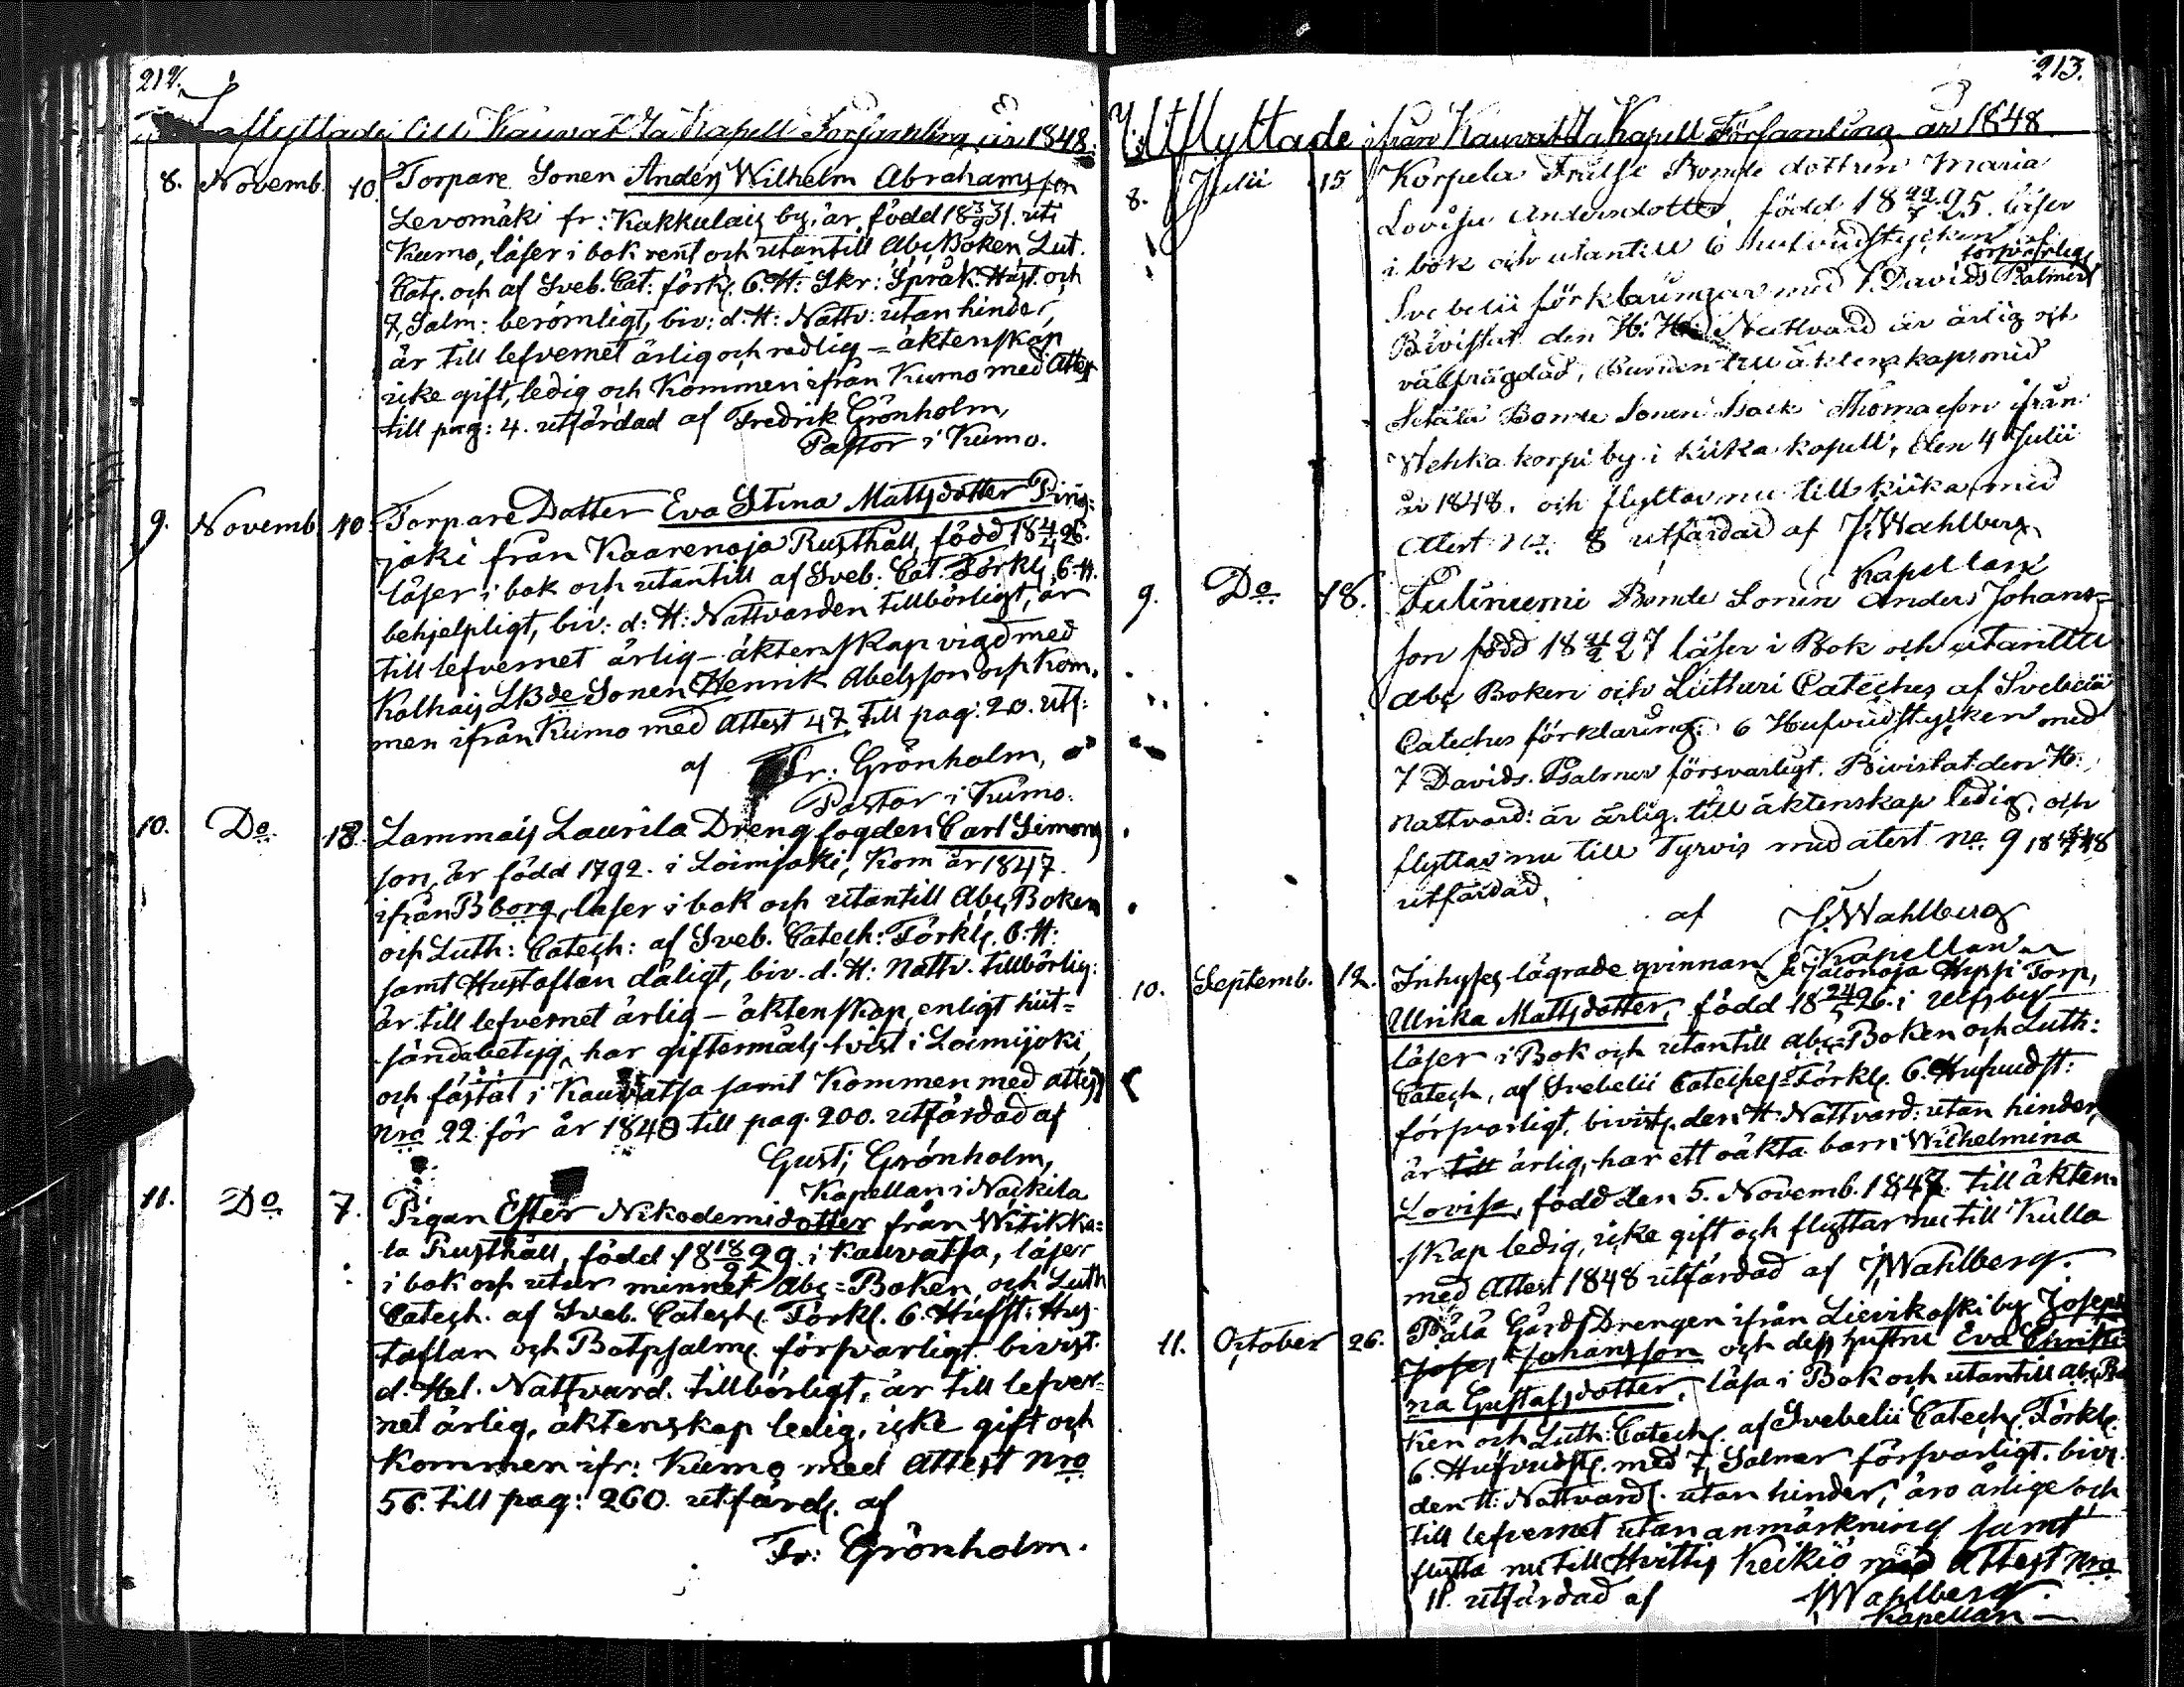 212.
flyttade till Kauvatsa Kapell Församling år 1848.
8. Novemb. 10. Torpare Sonen Anders Wilhelm Abrahamsson
Levomäki fr: Kakkulais by, är född 18 3/9 31. uti
Kumo, läser i bok rent och utantill Abc Boken, Lut.
Catz. och af Sveb. Cat: förk. 6. H: Skr: Språk. Hust. och
7, Salm: berömligt, biv: d. H: Nattv: utan hinder,
är till lefvernet ärlig och redlig = äktenskap
icke gift, ledig och Kommen ifrån Kumo med Attest
till pag: 4. utfärdad af Fredrik Grönholm,
Pastor i Kumo.
9. Novemb 10. Torpare Dotter Eva Stina Mattsdotter Piri=
joki från Kaarenoja Rusthåll, född 18 4/4 26.
läser i bok och utantill af Sveb. Cat. Förkl. 6. H.
behjelpligt, biv: d: H: Nattvarden tillbörligt, är
till lefvernet ärlig – äktenskap vigd med
Kolhais SkBde Sonen Henrik Abelsson och Kom.
men ifrån Kumo med Attest 47. till pag: 20. utf:
af Fr: Grönholm,
Pastor i Kumo.
10. Do 18. Lammais Laurila Dreng fogden Carl Simons
son, är född 1792. i Loimjoki, Kom år 1847.
ifrån Bborg, läser i bok och utantill Abc Boken
och Luth: Catech: af Sveb. Catech: Förkl. 6. H:
samt Hustaflan dåligt, biv. d. H: Nattv. tillbörlig:
är till lefvernet ärlig – äktenskap, enligt hit=
sändabetyg, har giftermåls tvist i Loimijoki,
och fästat i Kauvatsa samt Kommen med attest
Nro 22. för år 1848 till pag. 200. utfärdad af
Gust; Grönholm,
Kapellan i Nackila
11. Do 7. Pigan Ester Nikodemidotter från Witikka=
la Rusthåll, född 18 18/9 29. i Kauvatsa, läser
i bok och utur minnet Abc=Boken och Luth
Catech. af Sveb. Catech. Förkl. 6. Hufst: Hus
taflan och Botpsalm. försvarligt. bivist.
d. Hel. Nattvard. tillbörligt, är till lefver=
net ärlig, äktenskap ledig, icke gift och
Kommen ifr: Kumo med Attest Nro
56. till pag: 260. utfärd. af
Fr: Grönholm.
213.
Utflyttade ifrån Kauvatsa Kapell Församling år 1848
8. Julii 15 Korpela Frälse Bonde dottren Maria
Lovisa Andersdotter, född 18 25. läser
i bok och utantill 6 hufvudstycken af
försvarligt
Svebelii förklaringar med 7. Davids Psalmer
Bivistat den H: Nattvard är ärlig och
välfrägdad, Bunden till äktenskap med
Setälä Bonde Sonen Isack Thomasson ifrån
Wehkakorpi by i Kiika kapell, den 4 Julii
år 1848. och flyttar nu till Kiika med
Attest No. 8 utfärdad af J. Wahlberg
Kapellan
9. Do 18. Suliniemi Bonde Sonen Anders Johans=
son född 18 27 läser i Bok och utantill
Abc Boken och Lutheri Cateches af Svebelii
Cateches förklaring. 6 Hufvudstycken med
7 Davids Psalmer försvarligt. Bivistat den H:
Nattvard: är ärlig. till äktenskap ledig, och
flyttar nu till Tyrvis med atest No. 9 18 48
utfärdad.
af J. Wahlberg
Kapellan
10. Septemb. 12. Inhyses lägrade qvinnan Hyssi Torp,
Ulrika Mattsdotter, född 18 24/5 26. i Ulfsby
läser i Bok och utantill Abc=Boken och Luth:
Catech, af Svebelii Cateches=Förkl. 6. Hufvudst:
försvarligt, bivist. den H: Nattvard: utan hinder,
är till ärlig, har ett oäkta barn Wilhelmina
Lovisa, född den 5. Novemb. 1847. till äkten=
skap ledig, icke gift och flyttar nu till Kulla
med Attest 1848 utfärdad af J. Wahlberg.
11. October 26. Pälä Gårds Drengen ifrån Lievikoski by Joseph
Johansson och dess hustru Eva Christi
na Gustafsdotter, läsa i Bok och utantill Abc Bo
ken och Luth: Catech. af Svebelii Catech. Förkl.
6. Hufvudst. med 7, Salmer försvarligt. biv.
den H: Nattvard. utan hinder, äro ärlige och
till lefvernet utan anmärkning samt
flytta nu till Hvittis Keikiö med Attest Nro
11. utfärdad af J. Wahlberg.
Kapellan